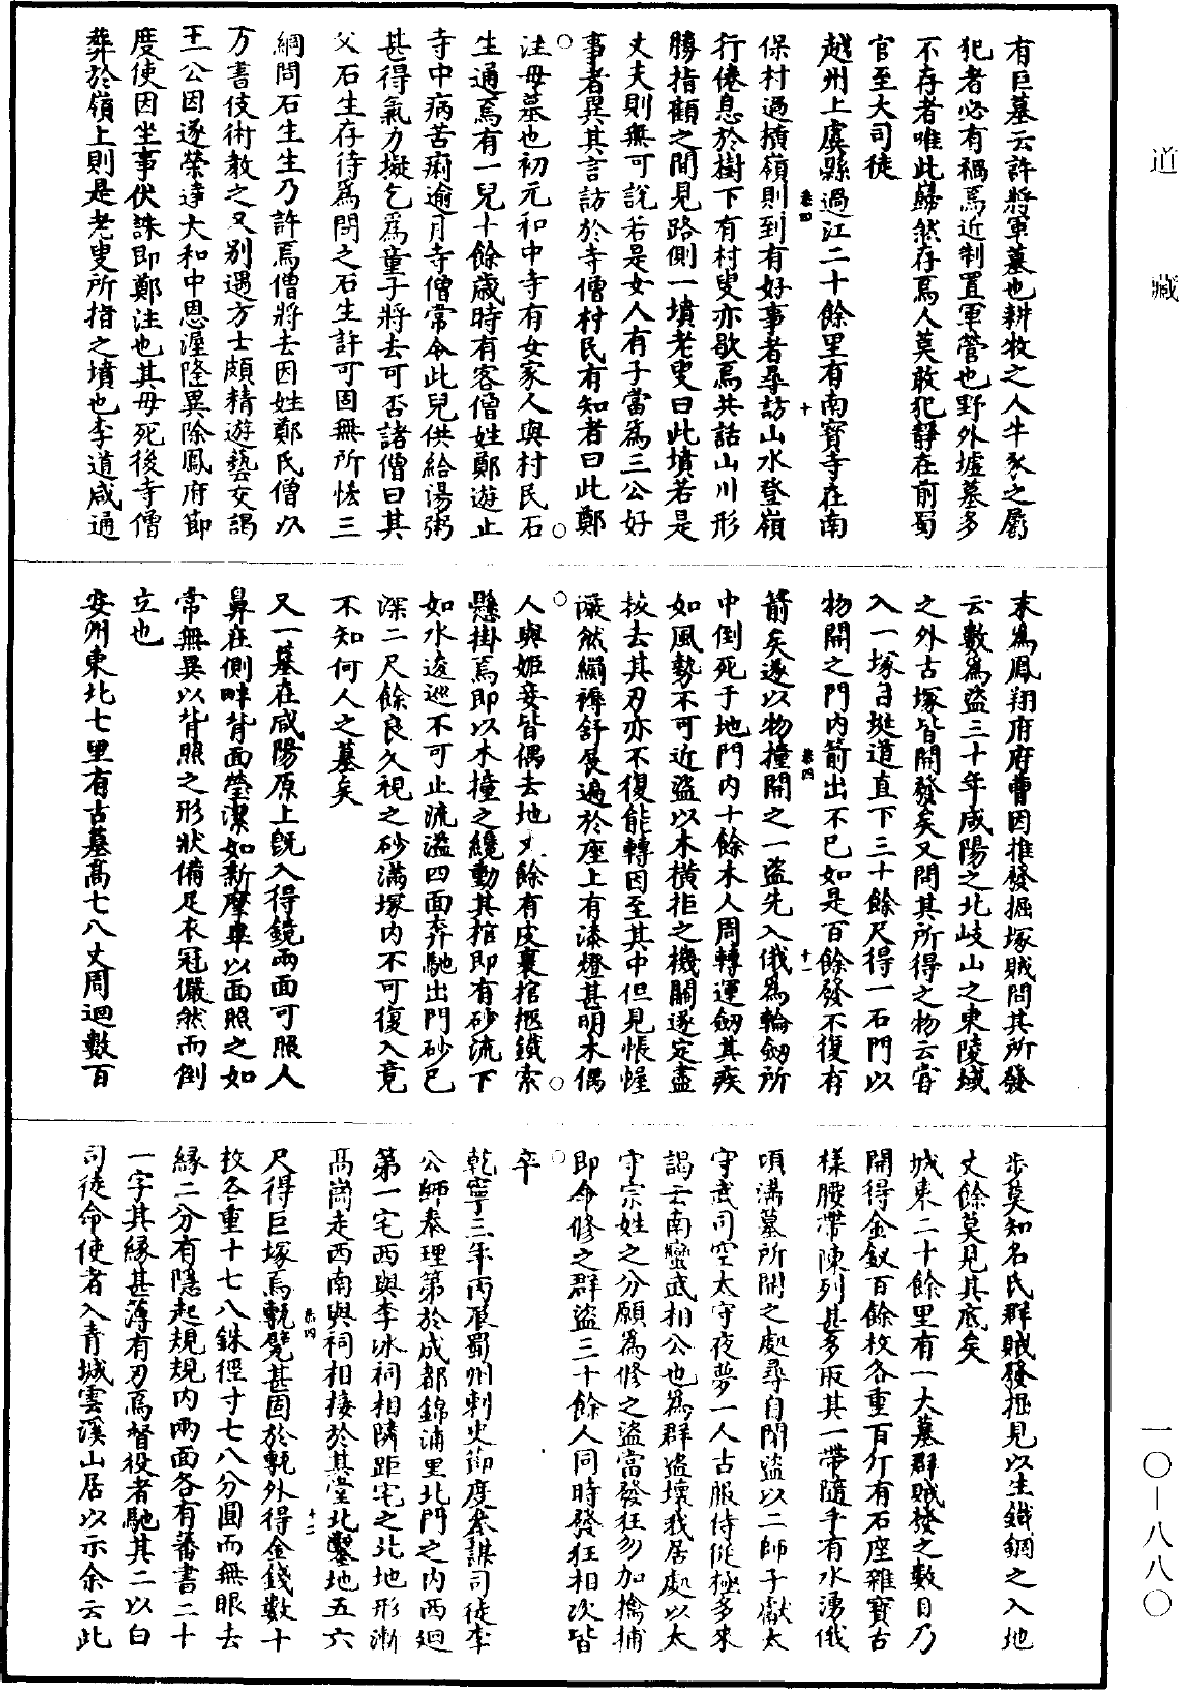 有巨墓云許將軍墓也耕牧之人牛豕之屬
犯者必有禍焉近制置軍營也野外墟墓多
不存者唯此巋然存焉人莫敢犯靜在前蜀
官至大司徒
越州上虞縣過江二十餘里有南寶寺在南
卷四
十
保村過橫嶺則到有好事者尋訪山水登嶺
行倦息於樹下有村叟亦歇焉共話山川形
勝指顧之間見路側一墳老叟曰此墳若是
丈夫則無可說若是女人有子當為三公好
事者異其言訪於寺僧村民有知者曰此鄭
注母墓也初元和中寺有女家人與村民石
生通焉有一兒十餘歲時有客僧姓鄭遊止
寺中病苦痢逾月寺僧常令此兒供給湯粥
甚得氣力擬乞為童子將去可否諸僧曰其
父石生存待為問之石生許可固無所恡三
綱問石生生乃許焉僧將去因姓鄭氏僧以
方書伎術教之又別遇方士頗精遊藝交謁
王公因遂榮達大和中恩渥隆異除鳳府節
度使因坐事伏誅即鄭注也其母死後寺僧
葬於嶺上則是老叟所指之墳也李道咸通
末為鳳翔府府曹因推發掘塚賊問其所發
云數為盜三十年咸陽之北岐山之東陵域
之外古塚皆開發矣又問其所得之物云嘗
入一塚自埏道直下三十餘尺得一石門以
物開之門內箭出不已如是百餘發不復有
卷四
十一
箭矣遂以物撞開之一盜先入俄為輪劒所
中倒死于地門內十餘木人周轉運劒其疾
如風勢不可近盜以木橫拒之機關遂定盡
拔去其刃亦不復能轉因至其中但見帳幄
儼然綢褥舒展遍於座上有漆燈甚明木偶
人與姬妾皆偶去地丈餘有皮裹棺柩鐵索
懸掛焉即以木撞之纔動其棺即有砂流下
如水逡巡不可止流溢四面奔馳出門砂已
深二尺餘良久視之砂滿塚內不可復入竟
不知何人之墓矣
又一墓在咸陽原上旣入得鏡兩面可照人
鼻在側畔背面瑩潔如新摩車以面照之如
常無異以背照之形狀備足衣冠儼然而倒
立也
安州東北七里有古墓高七八丈周迴數百
步莫知名氏群賊發掘見以生鐵錮之入地
丈餘莫見其底矣
城東二十餘里有一大墓群賊發之數日乃
開得金釵百餘枚各重百斤有石座雜寶古
樣腰帶陳列甚多取其一帶隨手有水湧俄
頃滿墓所開之處尋自閉盜以二師子獻太
守武司空太守夜夢一人古服侍從極多來
謁云南蠻武相公也為群盜壞我居處以太
守宗姓之分願為修之盜當發狂勿加擒捕
即命修之群盜三十餘人同時發狂相次皆
卒
乾寧三年丙辰蜀州刺史節度參謀司徒李
公師泰理第於成都錦浦里北門之內西迴
第一宅西與李冰祠相隣距宅之北地形漸
高崗走西南與祠相接於其堂北鑿地五六
卷四
十二
尺得巨塚焉甎甓甚固於甎外得金錢數十
枚各重十七八銖徑寸七八分圓而無眼去
緣二分有隱起規規內兩面各有蕃書二十
一字其緣甚薄有刃焉督役者馳其二以白
司徒命使者入青城雲溪山居以示余云此
道藏
一〇—八八〇